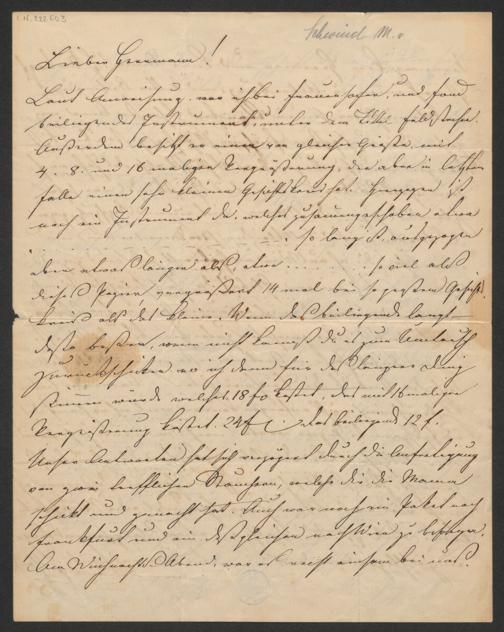 I.N. 222.603
Schwind M. v
Lieber Herrmann!
Laut Anweisung war ich bei Frauenhofer, und fand
beiliegendes Instrument, unter dem Titel Feldstecher.
Außerdem besitzt er einen von gleicher Größe, mit
4. 8. und 16 maliger Vergrößerung, der aber in letztem
Falle einen sehr kleinen Gesichtskreis hat. Hingegen ist
noch ein Instrument da, welches zusammengeschoben etwa
so lang ist, ausgezogen
aber etwas länger als etwa so viel als
dieses Papier, vergrößert 14 mal bei so großem Gesichts
kreis als das kleine. Wenn das beiliegende langt
desto besser, wenn nicht kannst du es zum Umtausch
zurückschicken wo ich dann für das längere Ding
stimmen würde welches 18 fl kostet, das mit 16 maliger
Vergrößerung kostet 24 fl. das beiliegende 12 f.
Unser Antworten hat sich verzögert durch die Anfertigung
von zwei trefflichen, welche dir die Mama
schickt und gemacht hat. Auch war noch ein Paket nach
Frankfurt und ein desgleichen nach Wien zu besorgen.
Am Weihnachts Abend, war es recht einsam bei uns.